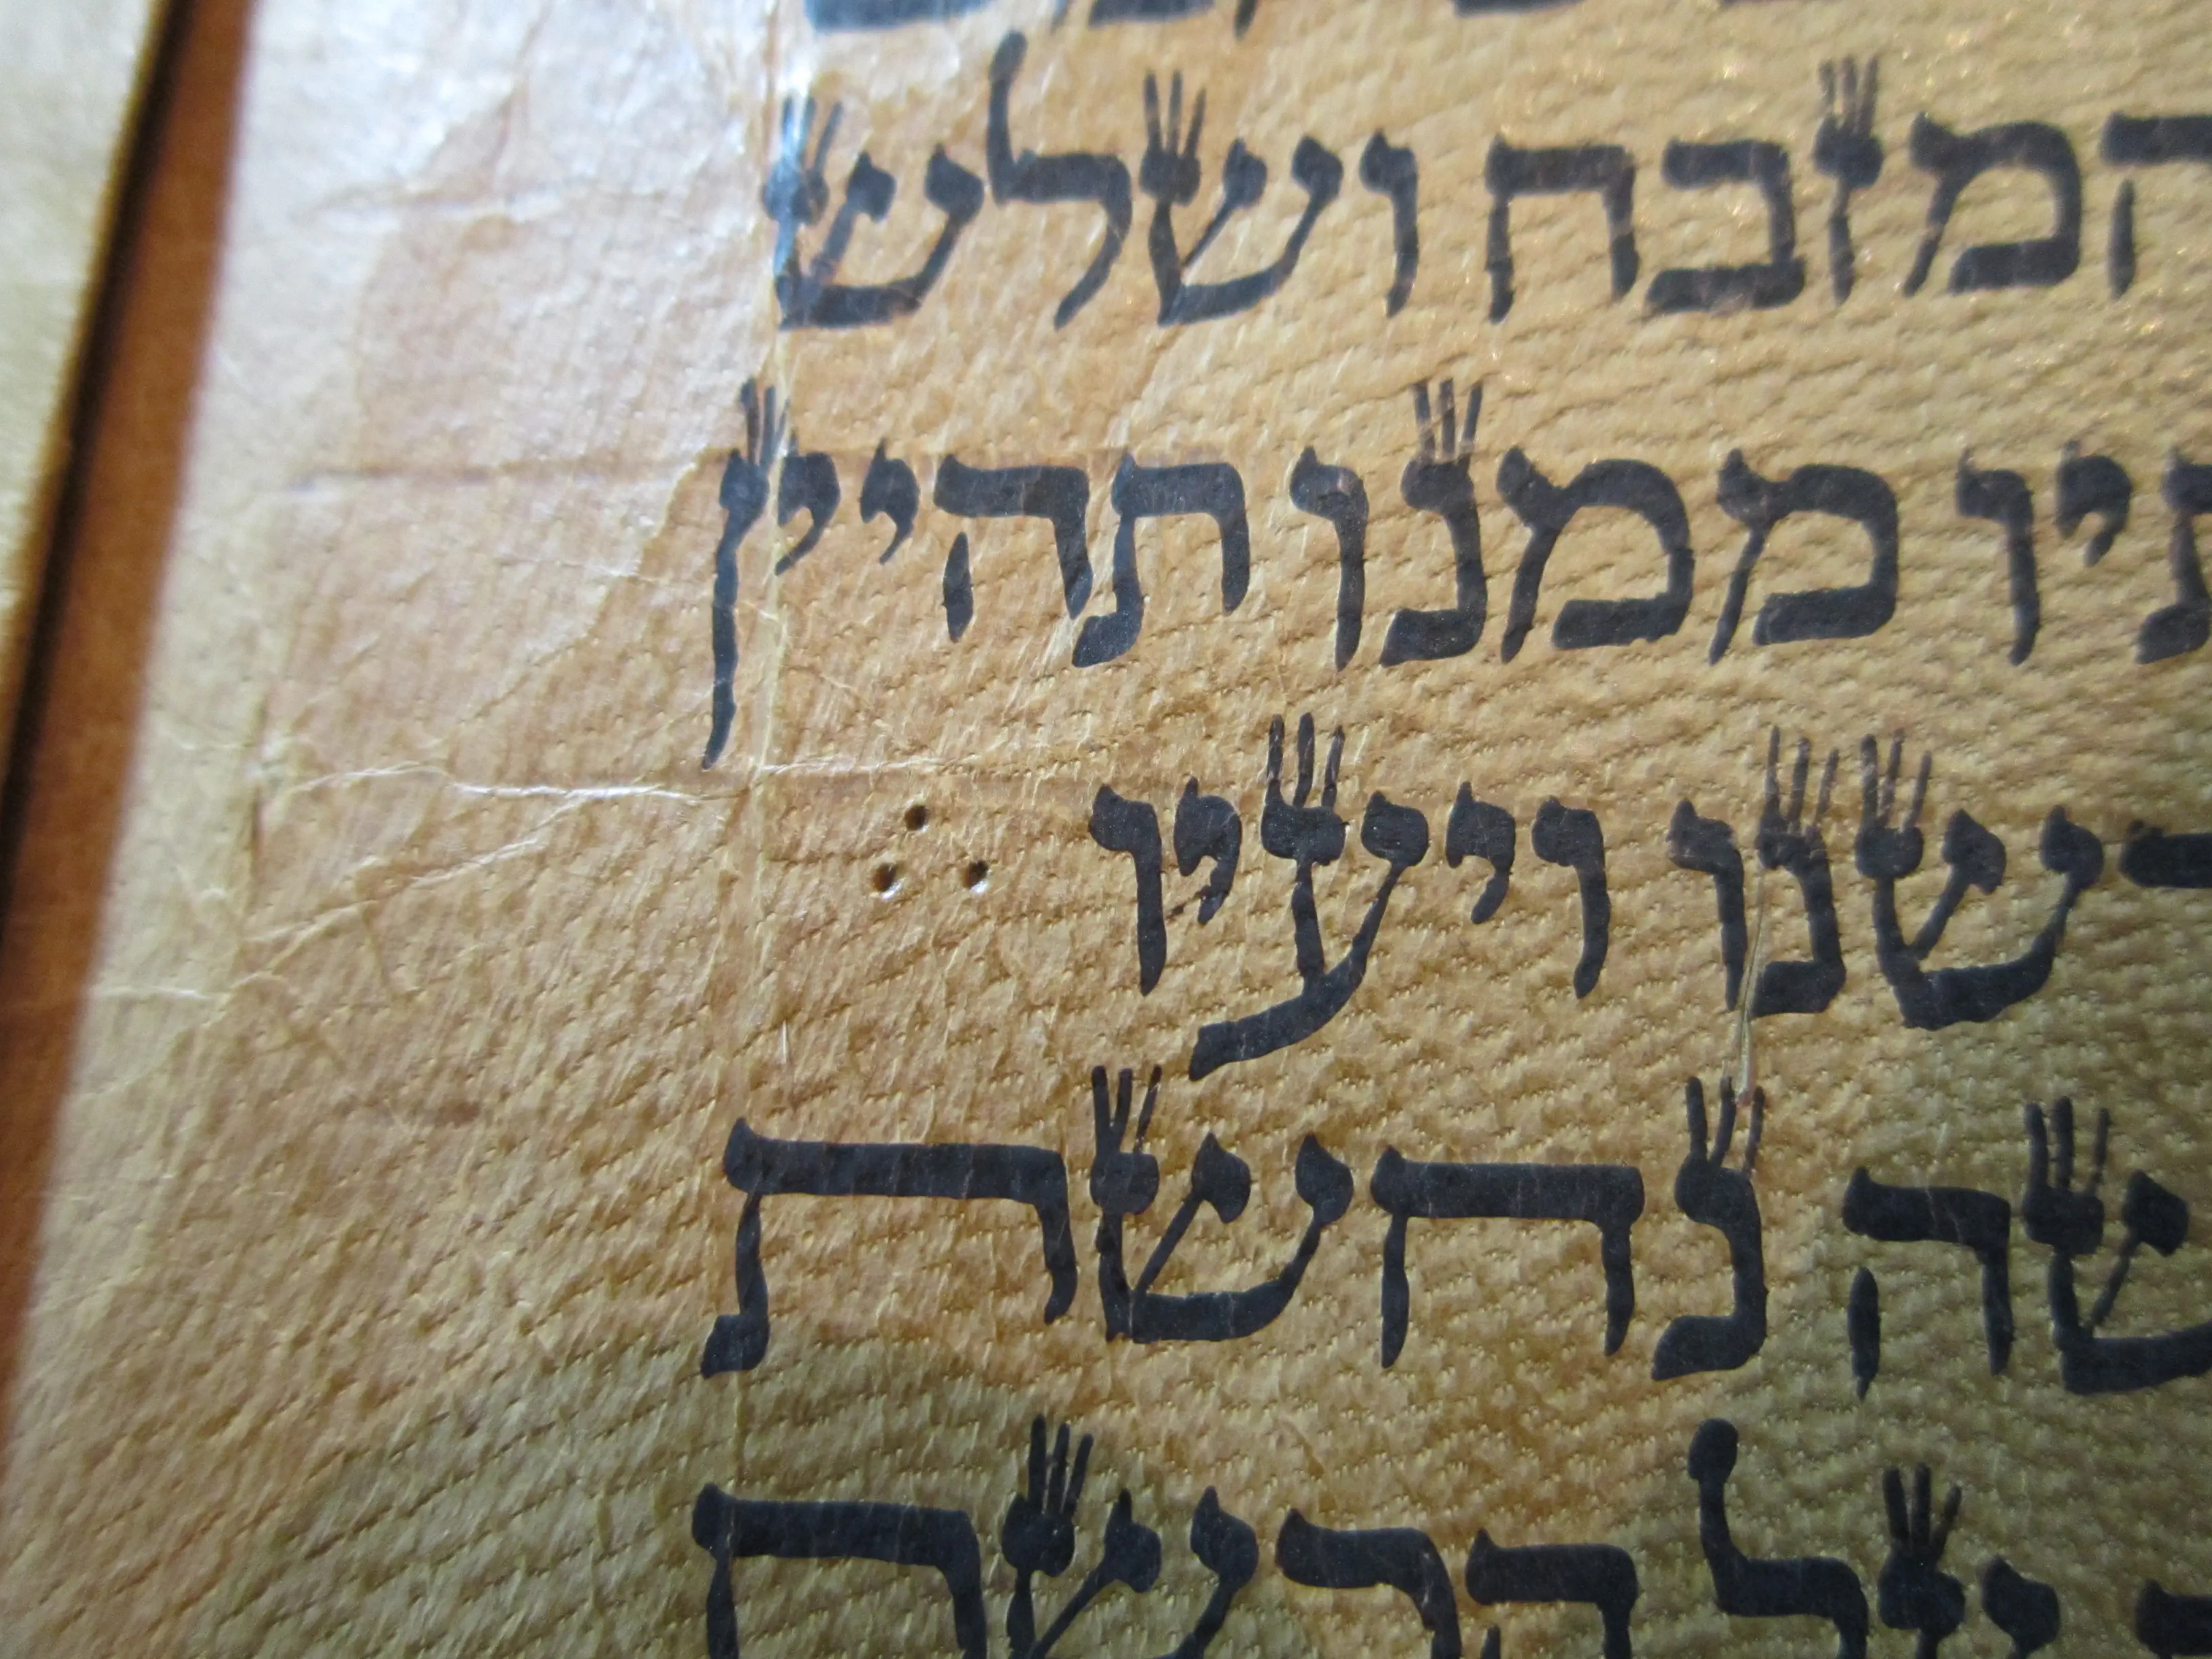 המזבח ושלש
תיו ממנו תהיין
דשנו ויעיו
שה נחשת
על הרשת